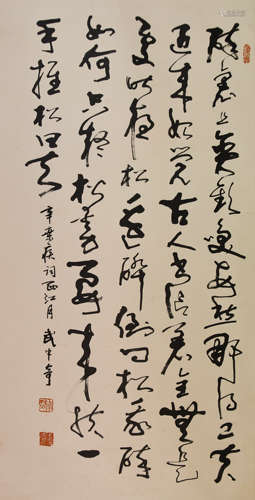 醉裏且貪歡笑要愁那得工夫
近來始覺古人書信著全無是
處昨夜松邊醉倒問松我醉
如何只疑松動要來扶以
手推松曰去
辛棄疾詞西江月 武中奇